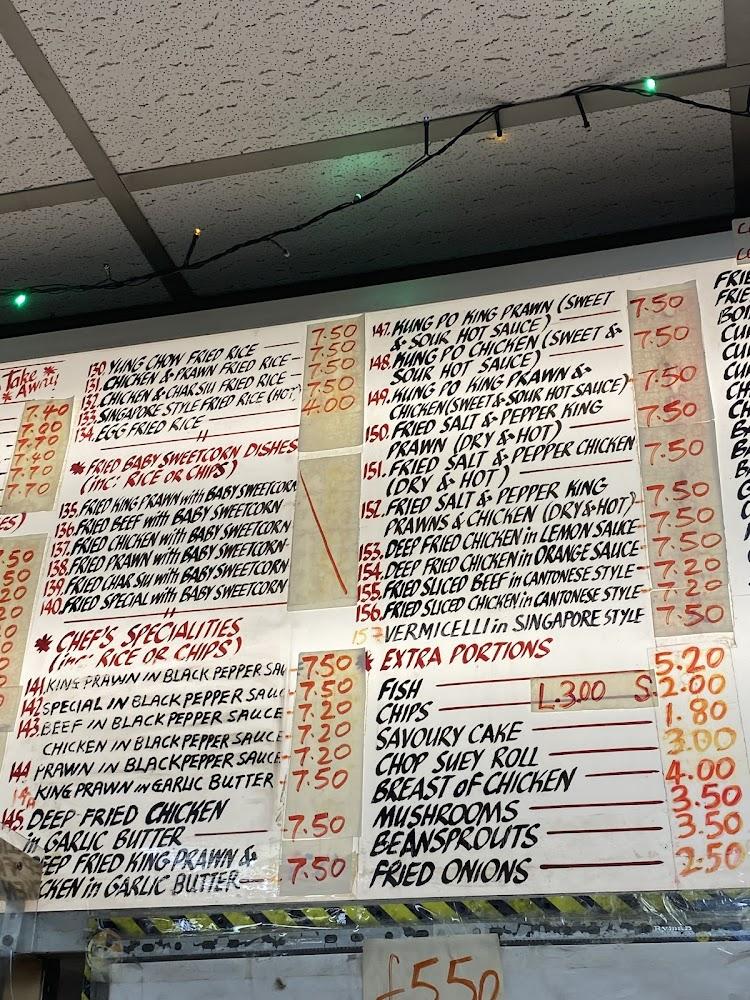 Take *
* Away!
7.40
7.00
7.70
7.40
7.70
7.70
ES)
7.50
130. YUNG CHOW FRIED RICE 7.50
131. CHICKEN & PRAWN FRIED RICE 7.50
132. CHICKEN & CHAR SIU FRIED RICE 7.50
133. SINGAPORE STYLE FRIED RICE (HOT) 7.50
134. EGG FRIED RICE 4.00
"
* FRIED BABY SWEETCORN DISHES
(inc: RICE OR CHIPS)
135. FRIED KING PRAWN with BABY SWEETCORN
136. FRIED BEEF with BABY SWEETCORN
137. FRIED CHICKEN with BABY SWEETCORN
138. FRIED PRAWN with BABY SWEETCORN
139. FRIED CHAR SIU with BABY SWEETCORN
140. FRIED SPECIAL with BABY SWEETCORN
"
* CHEF'S SPECIALITIES
(inc: RICE OR CHIPS)
141. KING PRAWN IN BLACK PEPPER SAU 7.50
142. SPECIAL IN BLACK PEPPER SAUC 7.50
143. BEEF IN BLACK PEPPER SAUCE 7.20
CHICKEN IN BLACK PEPPER SAUCE 7.20
144 PRAWN IN BLACK PEPPER SAUCE 7.20
KING PRAWN IN GARLIC BUTTER 7.50
145. DEEP FRIED CHICKEN
in GARLIC BUTTER 7.50
DEEP FRIED KING PRAWN &
CKEN in GARLIC BUTTER 7.50
147. KUNG PO KING PRAWN (SWEET 7.50
& SOUR HOT SAUCE)
148. KUNG PO CHICKEN (SWEET & 7.50
SOUR HOT SAUCE)
149. KUNG PO KING PRAWN &
CHICKEN (SWEET & SOUR HOT SAUCE) 7.50
150. FRIED SALT & PEPPER KING 7.50
PRAWN (DRY & HOT)
151. FRIED SALT & PEPPER CHICKEN 7.50
(DRY & HOT)
152. FRIED SALT & PEPPER KING
PRAWNS & CHICKEN (DRY & HOT) 7.50
153. DEEP FRIED CHICKEN in LEMON SAUCE 7.50
154. DEEP FRIED CHICKEN in ORANGE SAUCE 7.50
155. FRIED SLICED BEEF in CANTONESE STYLE 7.20
156. FRIED SLICED CHICKEN in CANTONESE STYLE 7.20
157 VERMICELLI in SINGAPORE STYLE 7.50
* EXTRA PORTIONS
FISH 5.20
CHIPS L.3.00 S. 2.00
SAVOURY CAKE 1.80
CHOP SUEY ROLL 3.00
BREAST of CHICKEN 4.00
MUSHROOMS 3.50
BEANSPROUTS 3.50
FRIED ONIONS 2.50
£5.50